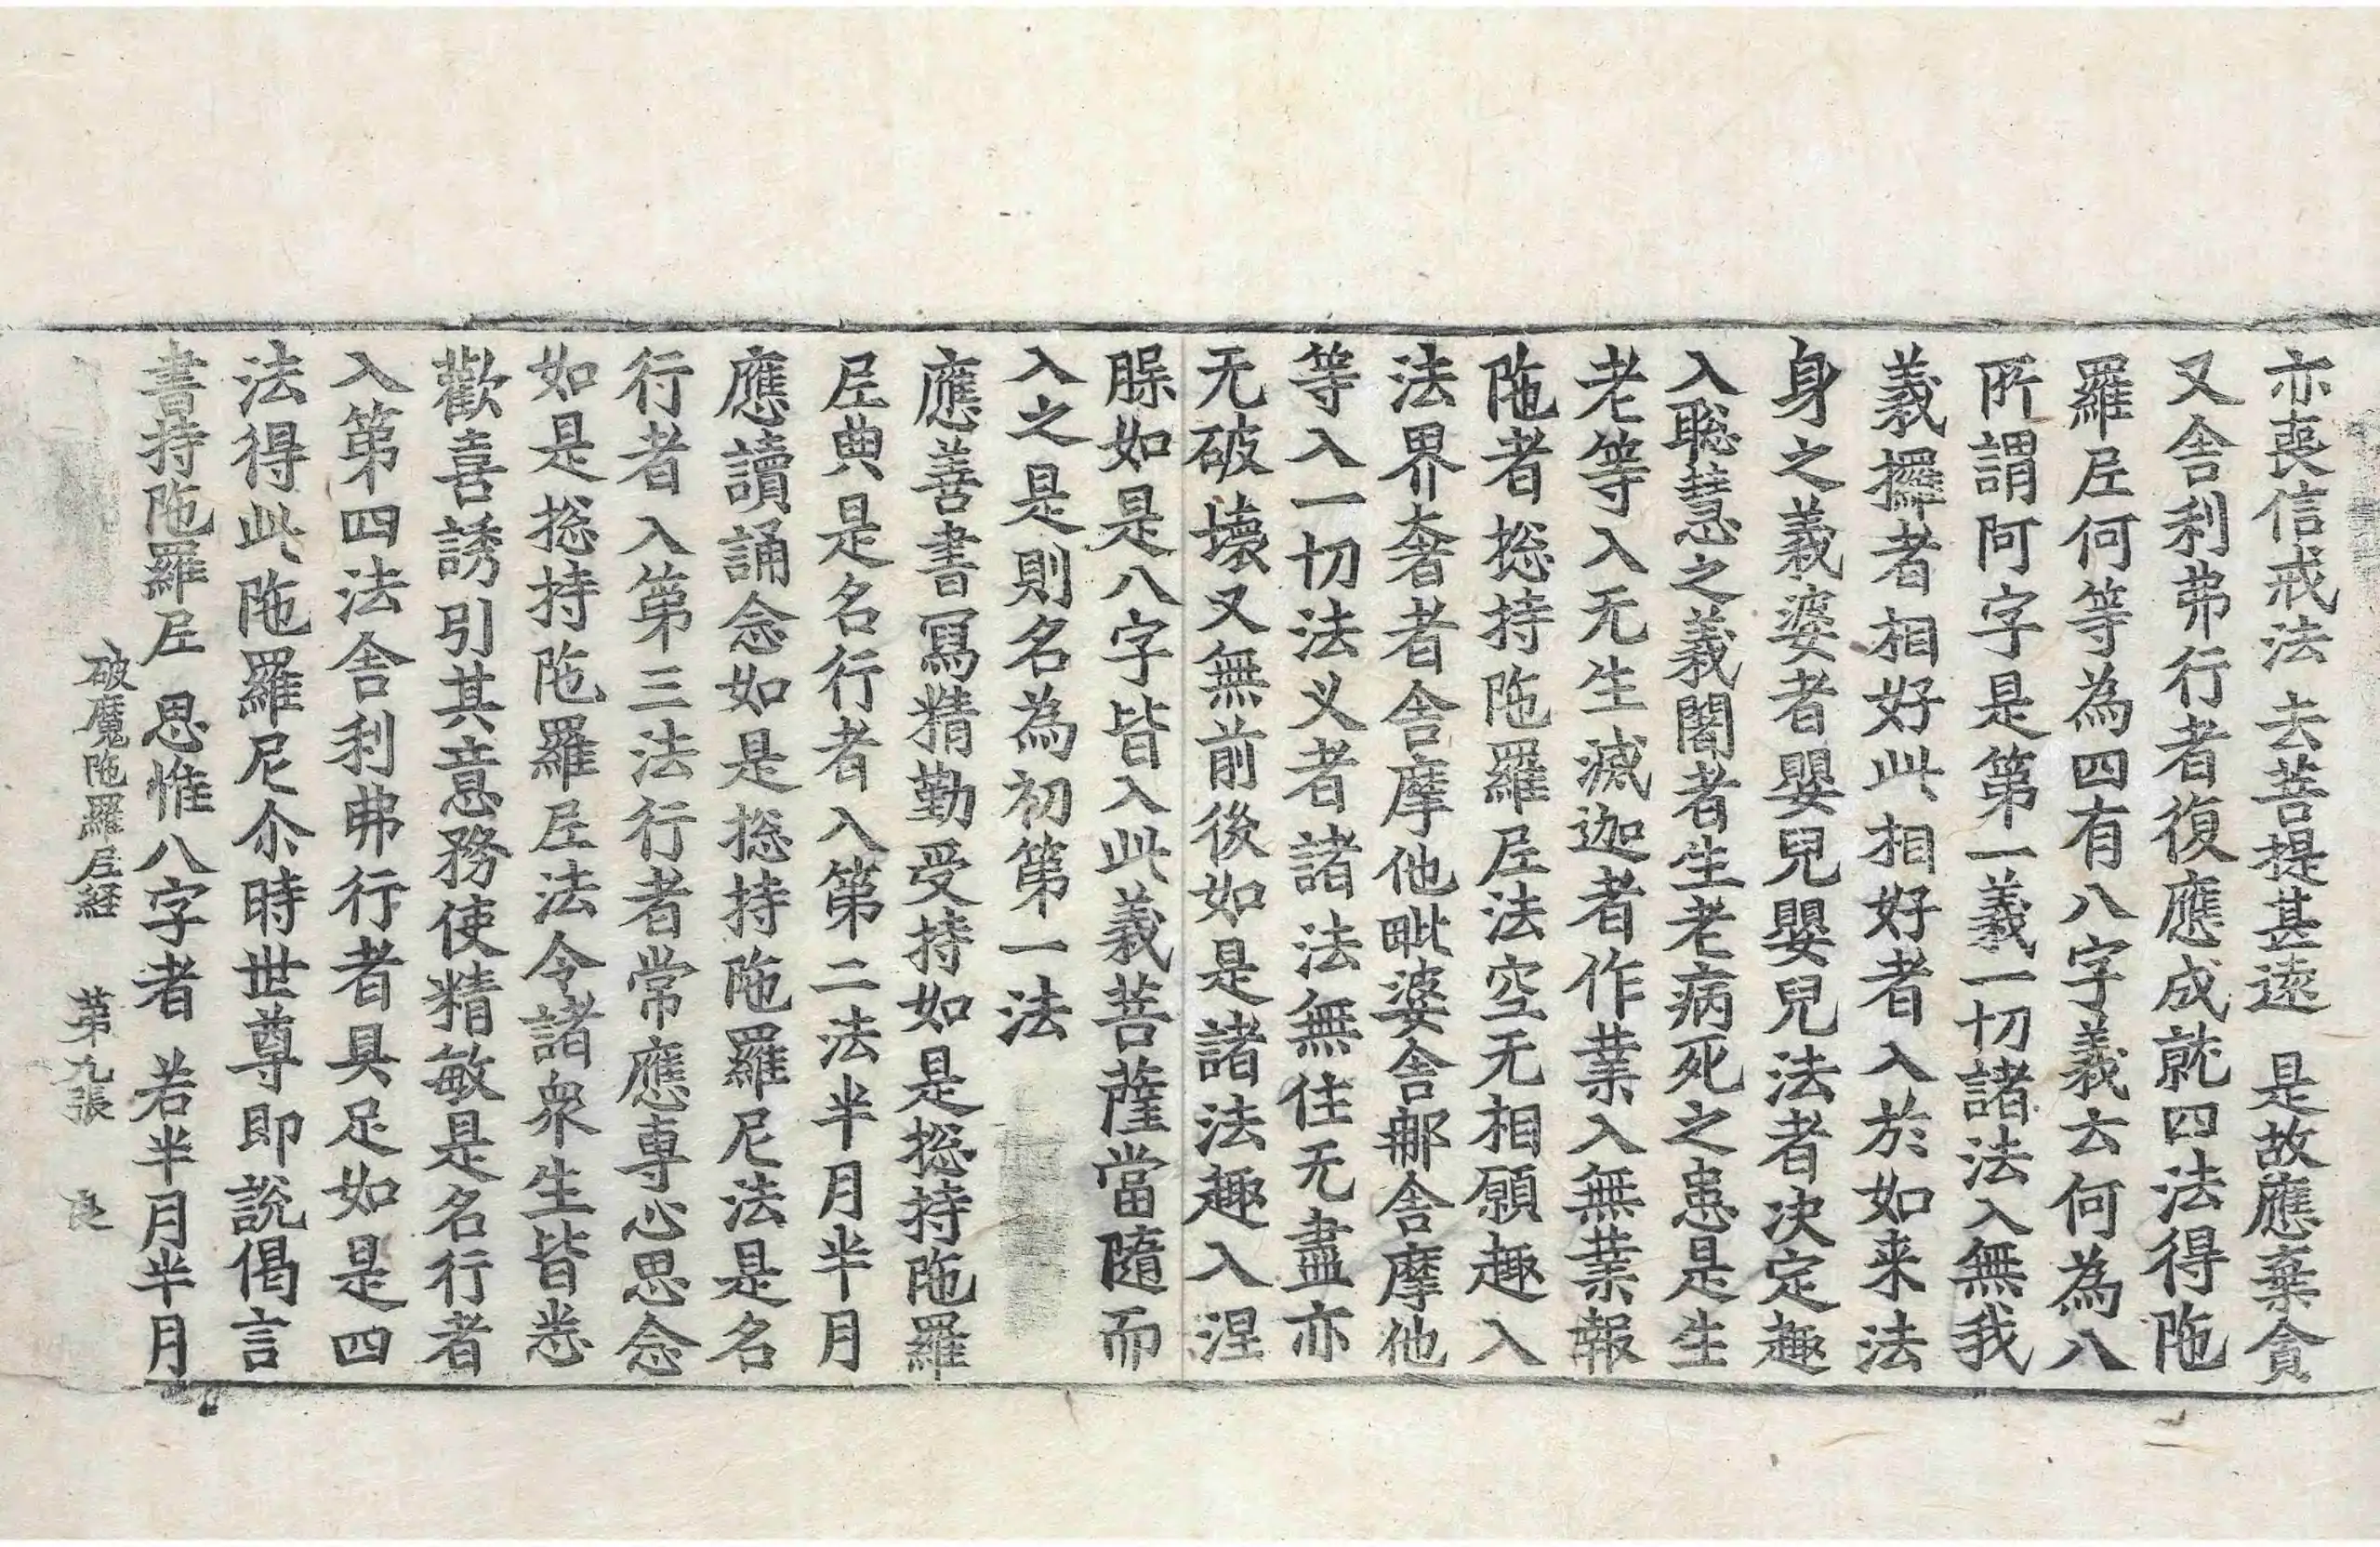 亦喪信戒法 去菩提甚遠 是故應棄貪
又舍利弗行者復應成就四法得陁
羅𡰱何等為四有八字義云何為八
所謂阿字是第一義一切諸法入無我
義攞者相好此相好者入於如来法
身之義婆者嬰兒嬰兒法者决定趣
入聡慧之義闍者生老病死之患是生
老等入无生滅迦者作業入無業報
陁者捴持陁羅𡰱法空无相願趣入
法界奢者舍摩他毗婆舍𨚗舍摩他
等入一切法义者諸法無住无盡亦
无破壞又無前後如是諸法趣入涅
如是八字皆入此義菩薩當隨而
入之是則名為初第一法
應善書寫精勤受持如是捴持陁羅
𡰱典是名行者入第二法半月半月
應讀誦念如是捴持陁羅尼法是名
行者入第三法行者常應專心思念
如是捴持陁羅𡰱法令諸衆生皆悉
歡喜誘引其意務使精敏是名行者
入第四法舍利弗行者具足如是四
法得此陁羅尼尒時世尊即說偈言
書持陁羅𡰱 思惟八字者 若半月半月
破魔陁羅𡰱経 第九張 良